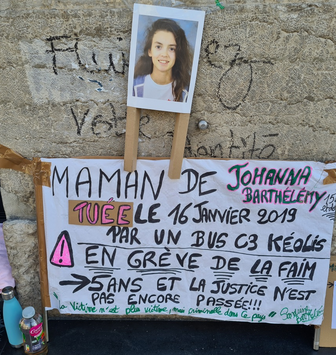 Votre
identité
MAMAN DE JOHANNA
BARTHÉLÉMY
TUÉE LE 16 JANVIER 2019
PAR UN BUS C3 KÉOLIS
EN GRÈVE DE LA FAIM
→ 5 ANS ET LA JUSTICE N'EST
PAS ENCORE PASSÉE!!!
"La victime n'est plus victime, mais criminelle dans ce pays"